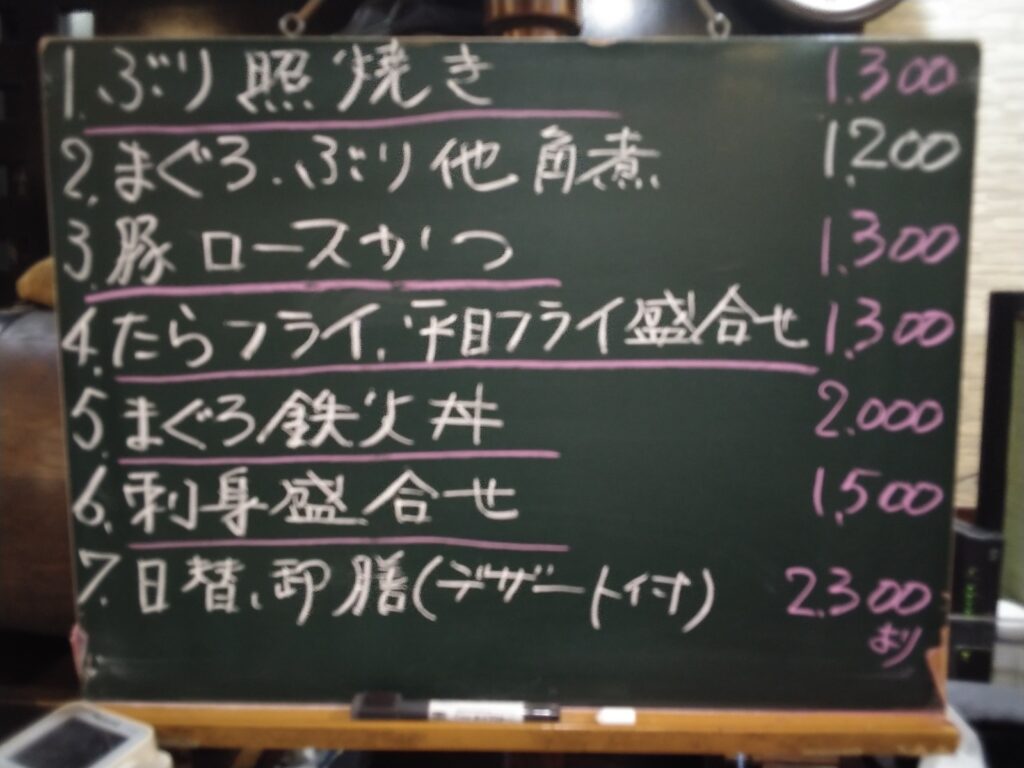 1. ぶり照焼き 1.300
2. まぐろ.ぶり他角煮 1.200
3. 豚ロースかつ 1.300
4. たらフライ.平目フライ盛合せ 1.300
5. まぐろ鉄火丼 2.000
6. 刺身盛合せ 1.500
7. 日替、御膳(デザート付) 2.300
より